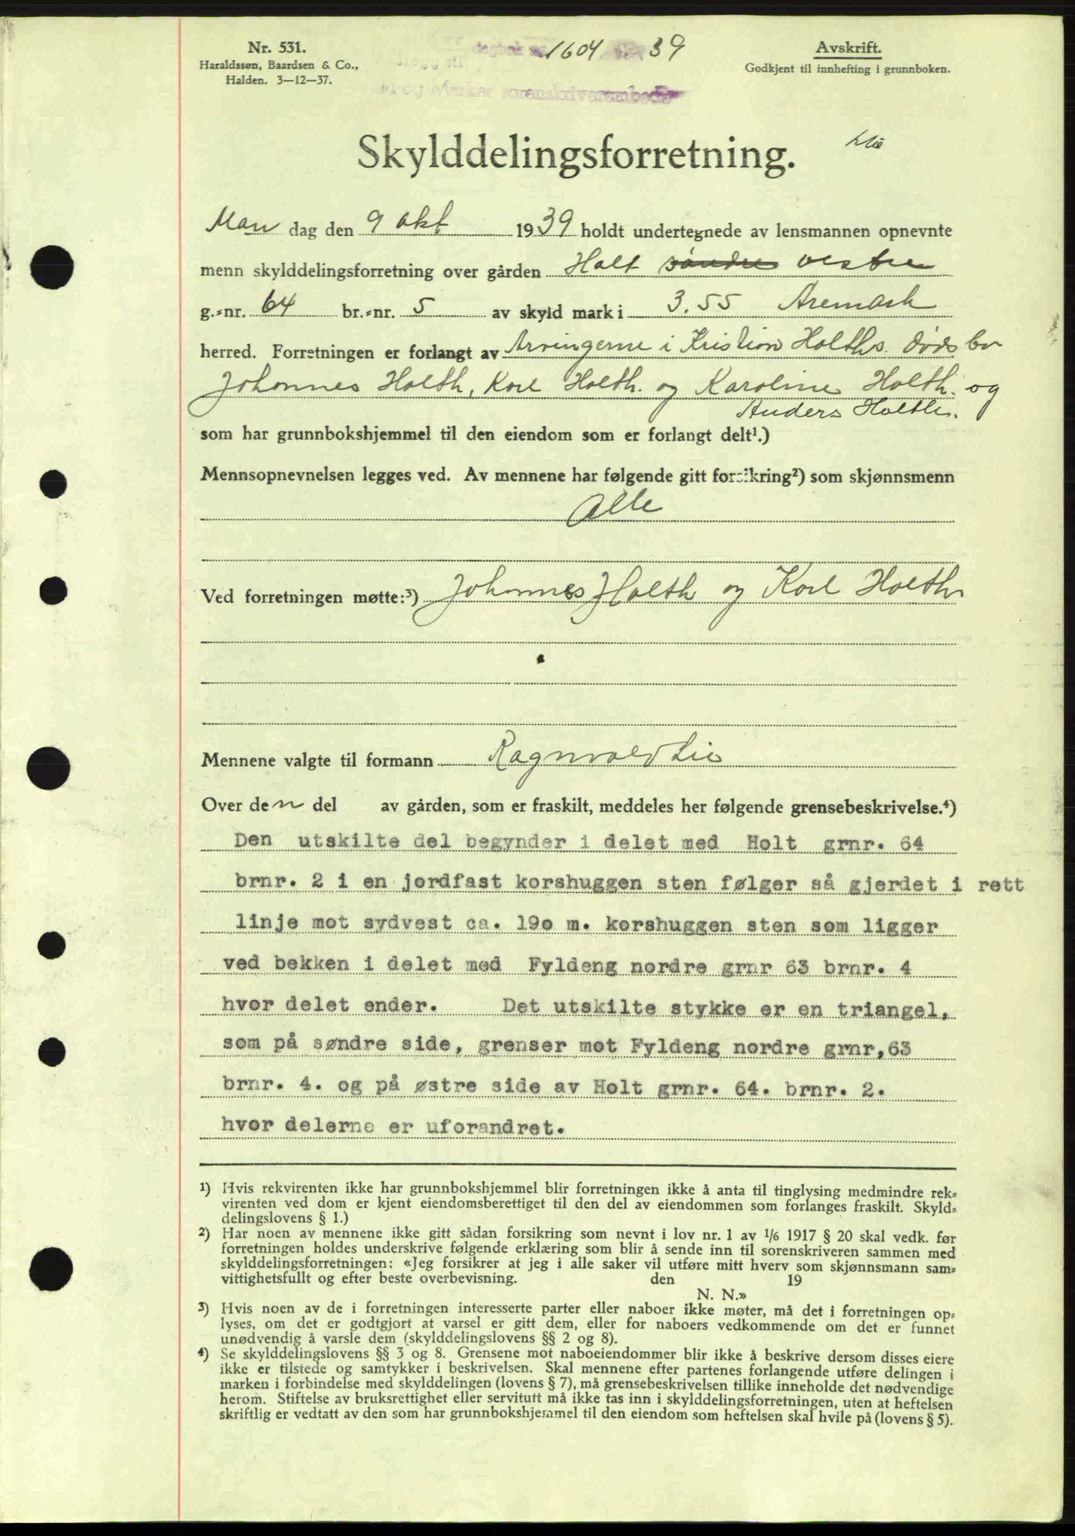 Nr. 531.
Haraldssøn, Baardsen & Co.,
Halden. 3—12—37.
dagbok nr. 1604 39
og Marker sorenskriverembede
Avskrift.
Godkjent til innhefting i grunnboken.
Skylddelingsforretning.
Man dag den 9 okt 1939 holdt undertegnede av lensmannen opnevnte
menn skylddelingsforretning over gården Holt søndre vestre
g.=nr. 64 br.=nr. 5 av skyld mark i 3.55 Aremark
herred. Forretningen er forlangt av Arvingerne i Kristian Holths dødsbo
Johannes Holth, Karl Holth. og Karoline Holth. og
Anders Holth.
som har grunnbokshjemmel til den eiendom som er forlangt delt¹.)
Mennsopnevnelsen legges ved. Av mennene har følgende gitt forsikring²) som skjønnsmenn
Alle
Ved forretningen møtte:³) Johannes Holth og Karl Holth
Mennene valgte til formann Ragnvald Lie
Over den del av gården, som er fraskilt, meddeles her følgende grensebeskrivelse.⁴)
Den utskilte del begynder i delet med Holt grnr. 64
brnr. 2 i en jordfast korshuggen sten følger så gjerdet i rett
linje mot sydvest ca. 190 m. korshuggen sten som ligger
ved bekken i delet med Fyldeng nordre grnr 63 brnr. 4
hvor delet ender. Det utskilte stykke er en triangel,
som på søndre side, grenser mot Fyldeng nordre grnr,63
brnr. 4. og på østre side av Holt grnr. 64. brnr. 2.
hvor delerne er uforandret.
¹) Hvis rekvirenten ikke har grunnbokshjemmel blir forretningen ikke å anta til tinglysing medmindre rek=
virenten ved dom er kjent eiendomsberettiget til den del av eiendommen som forlanges fraskilt. Skyld=
delingslovens § 1.)
²) Har noen av mennene ikke gitt sådan forsikring som nevnt i lov nr. 1 av 1/6 1917 § 20 skal vedk. før
forretningen holdes underskrive følgende erklæring som blir å sende inn til sorenskriveren sammen med
skylddelingsforretningen: «Jeg forsikrer at jeg i alle saker vil utføre mitt hverv som skjønnsmann sam=
vittighetsfullt og efter beste overbevisning. den 19
N. N.»
³) Hvis noen av de i forretningen interesserte parter eller naboer ikke møter, må det i forretningen op=
lyses, om det er godtgjort at varsel er gitt dem, eller for naboers vedkommende om det er funnet
unødvendig å varsle dem (skylddelingslovens §§ 2 og 8).
⁴) Se skylddelingslovens §§ 3 og 8. Grensene mot naboeiendommer blir ikke å beskrive dersom disses eiere
ikke er tilstede og samtykker i beskrivelsen. Skal mennene efter partenes forlangende utføre delingen i
marken i forbindelse med skylddelingen (lovens § 7), må grensebeskrivelsen tillike inneholde det nødvendige
herom. Stiftelse av bruksrettighet eller servitutt må ikke tas inn i skylddelingsforretningen, uten at heftelsen
skriftlig er vedtatt av den som har grunnbokshjemmel til den eiendom som heftelsen skal hvile på (lovens § 5).